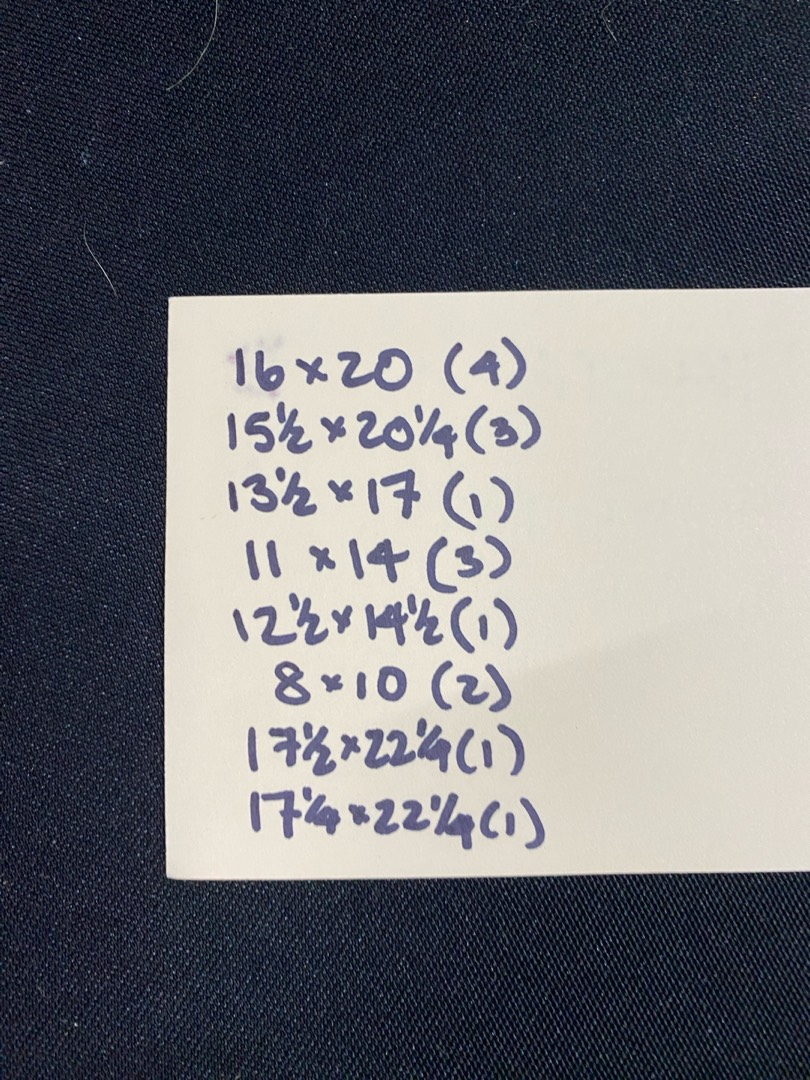 16 x 20 (4)
15½ x 20¼ (3)
13½ x 17 (1)
11 x 14 (3)
12½ x 14½ (1)
8 x 10 (2)
17½ x 22¼ (1)
17¼ x 22¼ (1)